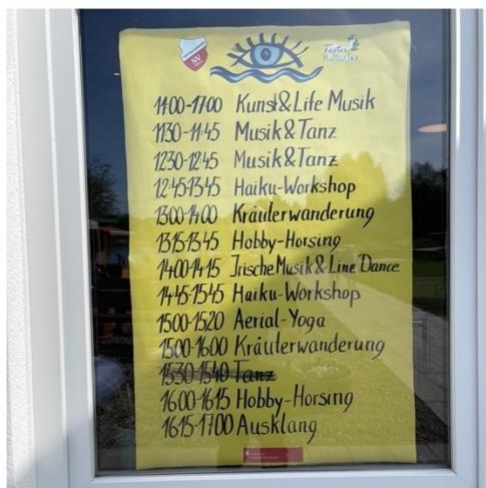 SV
11:00-17:00 Kunst&Life Musik
1130-11:45 Musik&Tanz
1230-12:45 Musik&Tanz
12:45-13:45 Haiku-Workshop
1300-14:00 Kräuterwanderung
1315-1345 Hobby-Horsing
1400-14:15 Irische Musik & Line Dance
1445-1545 Haiku-Workshop
1500-1520 Aerial-Yoga
1500-1600 Kräuterwanderung
1530-1540 Tanz
1600-1615 Hobby-Horsing
1615-1700 Ausklang